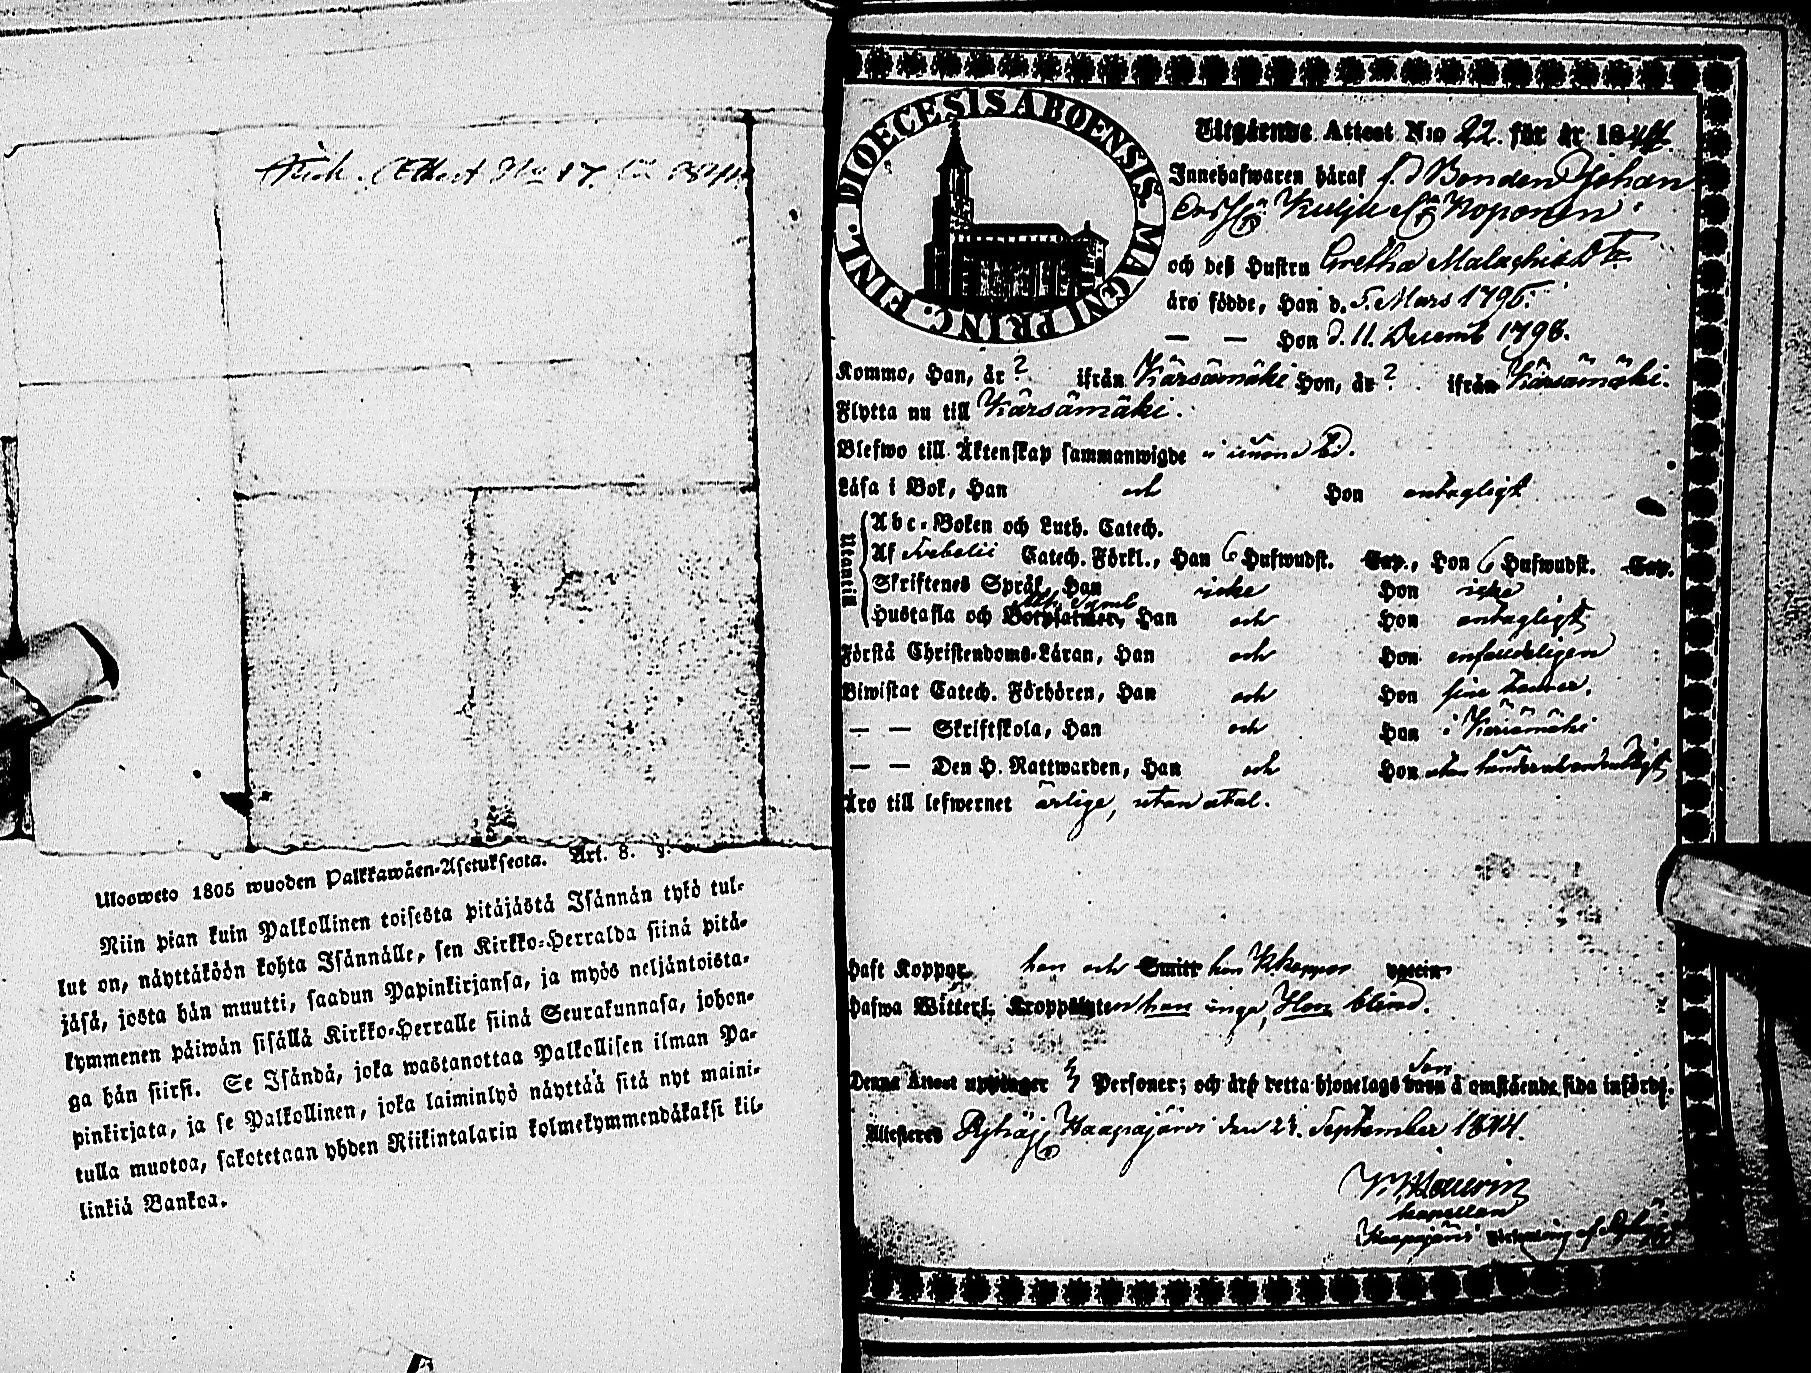 Attest No 17.
Ulosweto 1805 wuoden Palkkawäen-Asetuksesta. Art. 8. §.
Niin pian kuin Palkollinen toisesta pitäjästä Isännän tykö tul-
lut on, näyttäköön kohta Isännälle, sen Kirkko-Herralda siinä pitä-
jäsä, josta hän muutti, saadun Papinkirjansa, ja myös neljäntoista-
kymmenen päiwän sisällä Kirkko-Herralle siinä Seurakunnasa, johon-
ga hän siirsi. Se Isändä, joka wastanottaa Palkollisen ilman Pa-
pinkirjata, ja se Palkollinen, joka laiminlyö näyttää sitä nyt maini-
tulla muotoa, sakotetaan yhden Riikintalarin kolmekymmendäkaksi kil-
linkiä Bankoa.
DIOECESIS ABOENSIS. MAGNI PRINC. FINL.
Utgående Attest N:o 22. för år 1844.
Innehafwaren häraf f.d Bonden Johan
Koponen
och deß Hustru Gretha Malachiæ Dtr
äro födde, Han d. 5 Mars 1795.
— — Hon d. 11. Decemb 1798.
Kommo, Han, år ? ifrån Kärsämäki Hon, år ? ifrån Kärsämäki.
Flytta nu till Kärsämäki.
Blefwo till Äktenskap sammanwigde
Läsa i Bok, Han och Hon antagligt
Utantill
Abc-Boken och Luth. Catech.
Af Svebelii Catech. Förkl., Han 6 Hufwudst. Cap., Hon 6 Hufwudst. Cap.
Skriftenes Språk, Han icke Hon icke
Hustafla och Botpsalmer, Han och Hon antagligt
Förstå Christendoms-Läran, Han och Hon enfaldeligen
Biwistat Catech. Förhören, Han och Hon sine
— — Skriftskola, Han och Hon i Kärsämäki
— — Den H. Nattwarden, Han och Hon
Äro till lefwernet ärlige, utan åtal.
Haft Koppor, han och hon Kkoppor
Hafwa Witterl. Kroppslyten han inga, Hon blind.
Denna Attest upptager 3 Personer; och äro detta hjonelags son å omstående sida införde.
Attesteres Pyhäj. Haapajärvi den 23. September 1844.
Kapellan
Haapajärvi